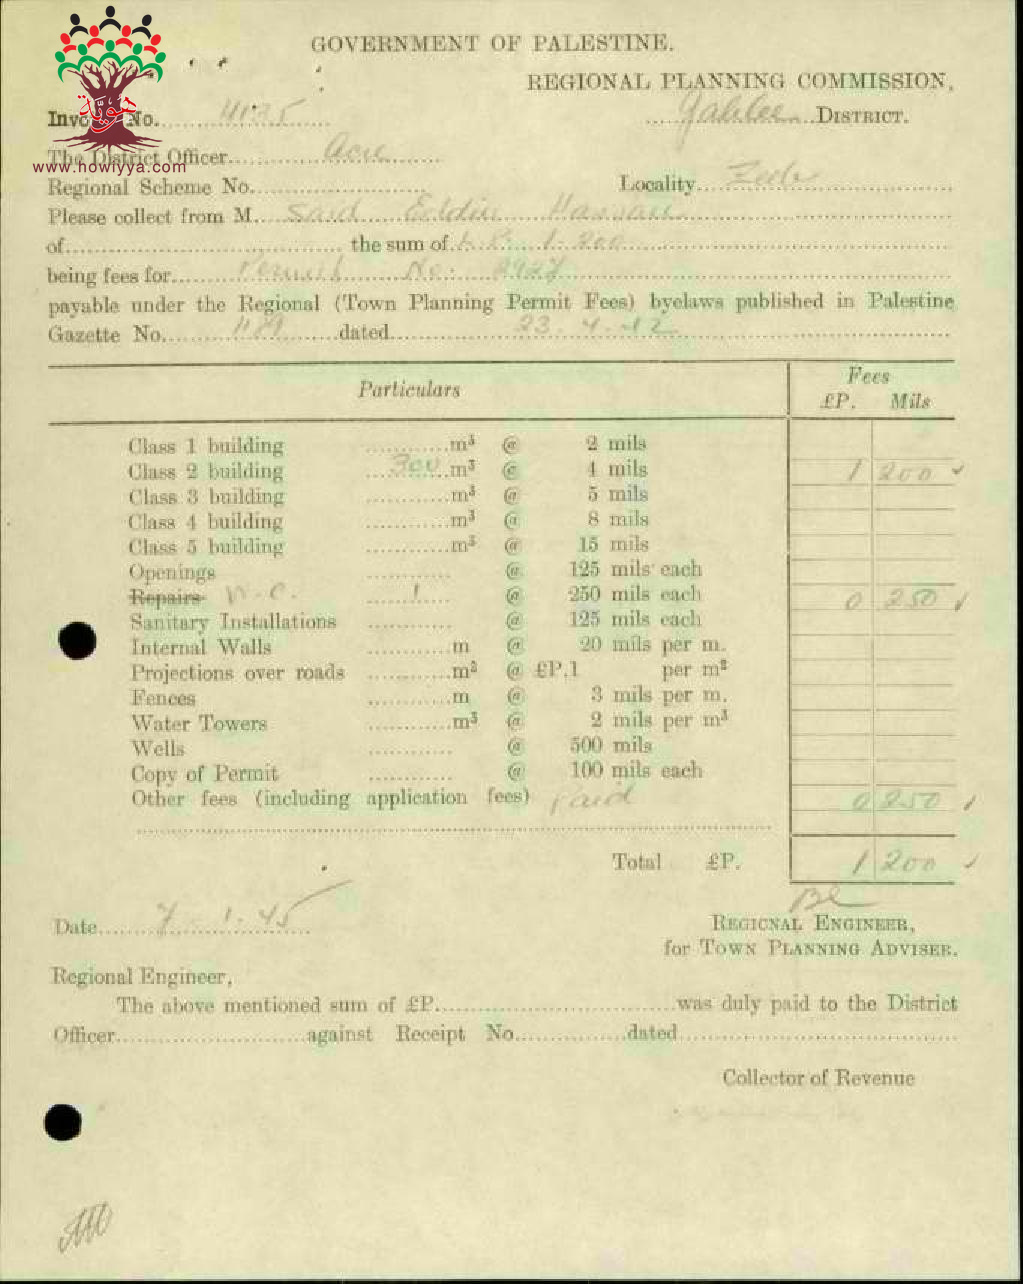 GOVERNMENT OF PALESTINE.
REGIONAL PLANNING COMMISSION,
هوية
Invo No. 4135 Galilee DISTRICT.
The District Officer Acre
www.howiyya.com
Regional Scheme No. Locality Zeeb
Please collect from M. Said Eddin Hassan
of the sum of L.P. 1.200
being fees for Permit No. 2927
payable under the Regional (Town Planning Permit Fees) byelaws published in Palestine
Gazette No. 1189 dated 23.4.42
Particulars Fees
£P. Mils
Class 1 building m³ @ 2 mils
Class 2 building 300 m³ @ 4 mils 1 200 ✓
Class 3 building m³ @ 5 mils
Class 4 building m³ @ 8 mils
Class 5 building m³ @ 15 mils
Openings @ 125 mils each
Repairs W.C. 1 @ 250 mils each 0 250 ✓
Sanitary Installations @ 125 mils each
Internal Walls m @ 20 mils per m.
Projections over roads m² @ £P.1 per m²
Fences m @ 3 mils per m.
Water Towers m³ @ 2 mils per m³
Wells @ 500 mils
Copy of Permit @ 100 mils each
Other fees (including application fees) Paid 0 250 ✓
Total £P. 1 200 ✓
Date 7.1.45 REGIONAL ENGINEER,
for TOWN PLANNING ADVISER.
Regional Engineer,
The above mentioned sum of £P. was duly paid to the District
Officer against Receipt No. dated
Collector of Revenue